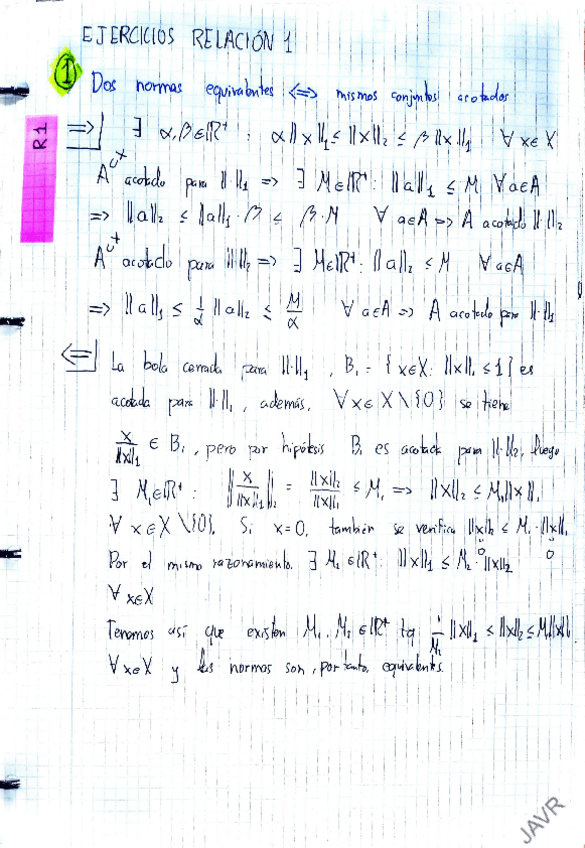 EJERCICIOS RELACIÓN 1
R1
1 Dos normas equivalentes <=> mismos conjuntos acotados
=>| ∃ α,β∈ℝ⁺ : α‖x‖₁ ≤ ‖x‖₂ ≤ β‖x‖₁ ∀x∈X
A⊂X acotado para ‖·‖₁ => ∃ M∈ℝ⁺: ‖a‖₁ ≤ M ∀a∈A
=> ‖a‖₂ ≤ ‖a‖₁·β ≤ β·M ∀a∈A => A acotado ‖·‖₂
A⊂X acotado para ‖·‖₂ => ∃ M∈ℝ⁺: ‖a‖₂ ≤ M ∀a∈A
=> ‖a‖₁ ≤ 1/α ‖a‖₂ ≤ M/α ∀a∈A => A acotado para ‖·‖₁
<=| La bola cerrada para ‖·‖₁, B₁ = {x∈X: ‖x‖₁ ≤ 1} es
acotada para ‖·‖₁, además, ∀x∈X\{0} se tiene
x/‖x‖₁ ∈ B₁, pero por hipótesis B₁ es acotada para ‖·‖₂, luego
∃ M₁∈ℝ⁺: ‖x/‖x‖₁‖₂ = ‖x‖₂/‖x‖₁ ≤ M₁ => ‖x‖₂ ≤ M₁‖x‖₁
∀x∈X\{0}. Si x=0, también se verifica ‖x‖₂ ≤ M₁·‖x‖₁
0 0
Por el mismo razonamiento, ∃ M₂∈ℝ⁺: ‖x‖₁ ≤ M₂·‖x‖₂
∀x∈X
Tenemos así que existen M₁, M₂∈ℝ⁺ tq 1/M₂ ‖x‖₁ ≤ ‖x‖₂ ≤ M₁‖x‖₁
∀x∈X y las normas son, por tanto, equivalentes.
JAVR